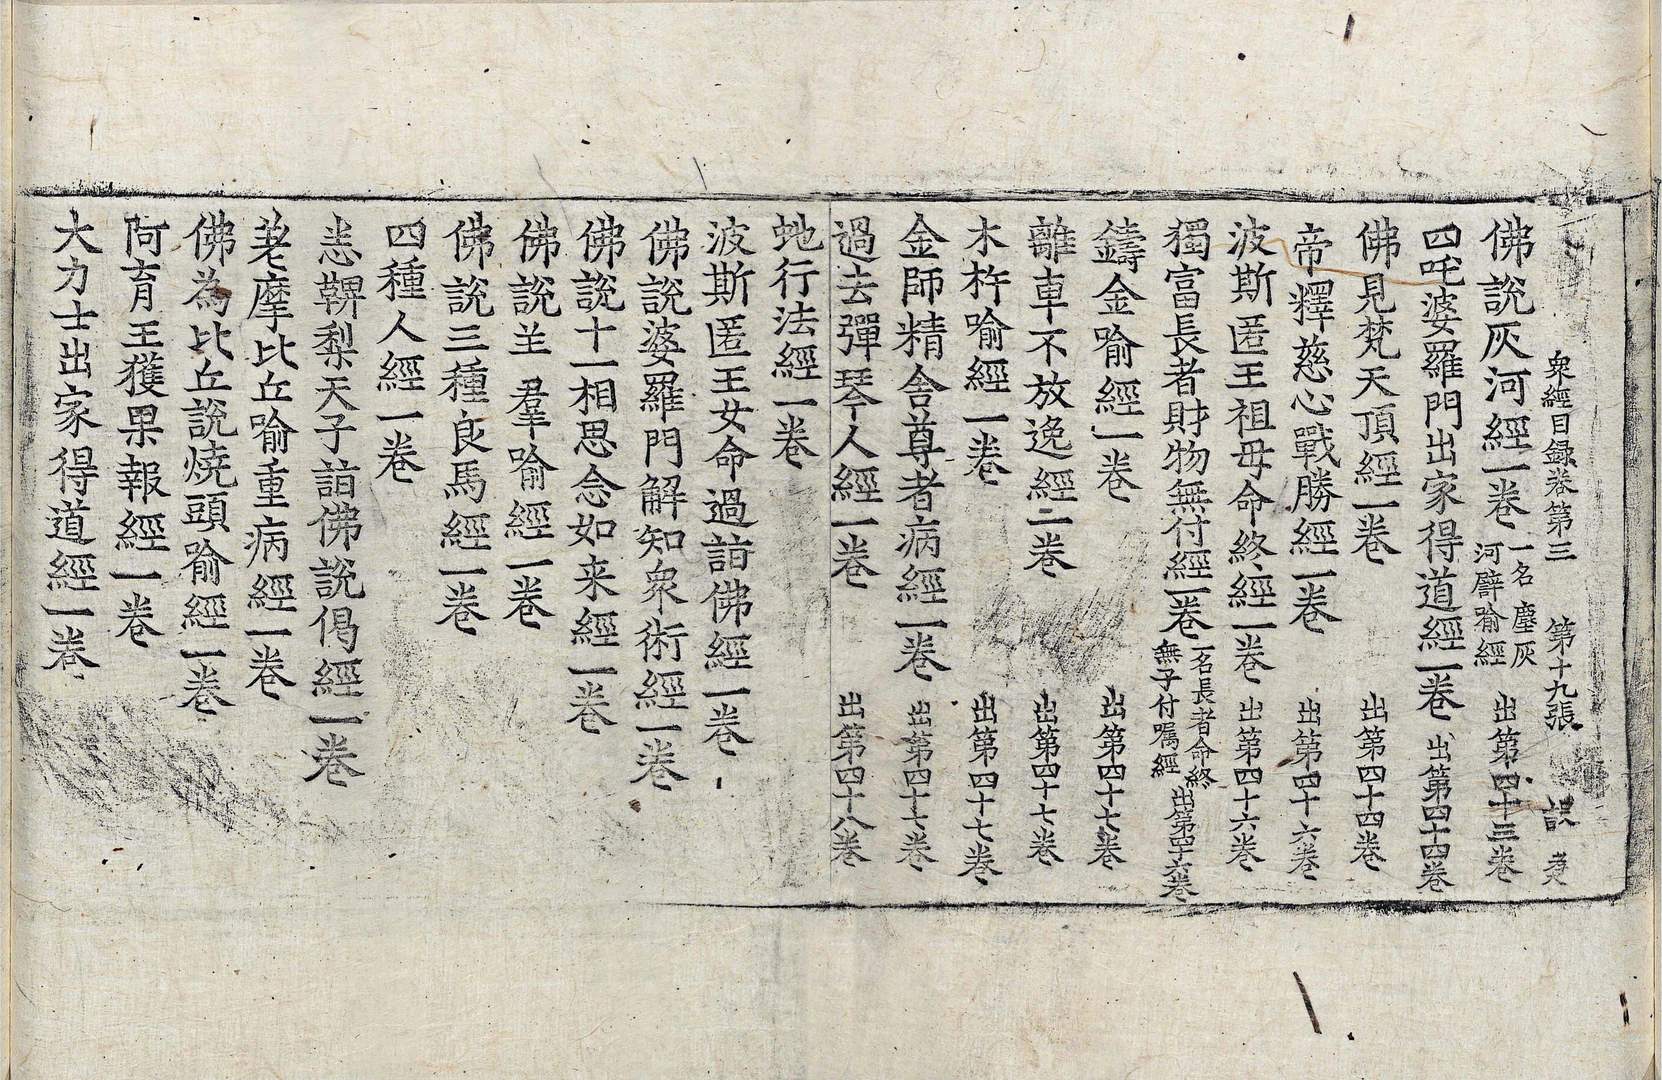 衆經目録卷第三　第十九張
佛說灰河經一卷 一名塵灰河譬喻經 出第四十三卷
四吒婆羅門出家得道經一卷 出第四十四卷
佛見梵天頂經一卷 出第四十四卷
帝釋慈心戰勝經一卷 出第四十六卷
波斯匿王祖母命終經一卷 出第四十六卷
獨富長者財物無付經一卷 一名長者命終無子付囑經 出第四十六卷
鑄金喻經一卷 出第四十七卷
離車不放逸經二卷 出第四十七卷
木杵喻經一卷 出第四十七卷
金師精舍尊者病經一卷 出第四十七卷
過去彈琴人經一卷 出第四十八卷
虵行法經一卷
波斯匿王女命過詣佛經一卷
佛說婆羅門解知衆術經一卷
佛說十一相思念如来經一卷
佛說羊羣喻經一卷
佛說三種良馬經一卷
四種人經一卷
恙鞞梨天子詣佛說偈經一卷
荖摩比丘喻重病經一卷
佛為比丘說燒頭喻經一卷
阿育王獲果報經一卷
大力士出家得道經一卷